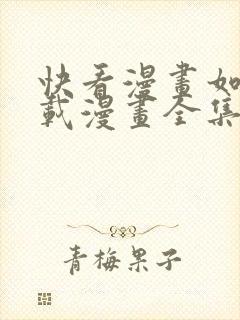 快看漫畫如
載漫畫全集
青梅果子